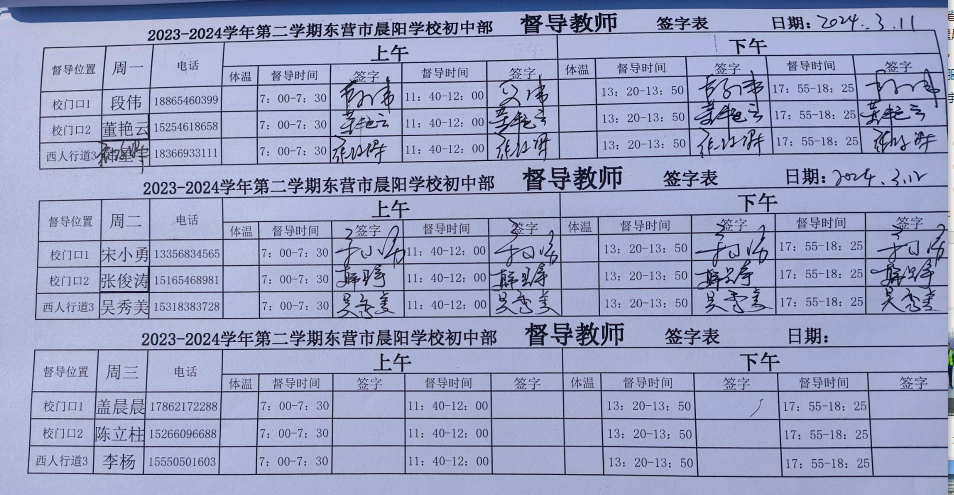 2023-2024学年第二学期东营市晨阳学校初中部 督导教师 签字表 日期：2024.3.11
督导位置 周一 电话 上午 下午
体温 督导时间 签字 督导时间 签字 体温 督导时间 签字 督导时间 签字
校门口1 段伟 18865460399 7：00-7：30 段伟 11：40-12：00 段伟 13：20-13：50 段伟 17：55-18：25 段伟
校门口2 董艳云 15254618658 7：00-7：30 董艳云 11：40-12：00 董艳云 13：20-13：50 董艳云 17：55-18：25 董艳云
西人行道3 18366933111 7：00-7：30 11：40-12：00 13：20-13：50 17：55-18：25
2023-2024学年第二学期东营市晨阳学校初中部 督导教师 签字表 日期：2024.3.12
督导位置 周二 电话 上午 下午
体温 督导时间 签字 督导时间 签字 体温 督导时间 签字 督导时间 签字
校门口1 宋小勇 13356834565 7：00-7：30 11：40-12：00 13：20-13：50 17：55-18：25
校门口2 张俊涛 15165468981 7：00-7：30 11：40-12：00 13：20-13：50 17：55-18：25
西人行道3 吴秀美 15318383728 7：00-7：30 吴秀美 11：40-12：00 吴秀美 13：20-13：50 吴秀美 17：55-18：25 吴秀美
2023-2024学年第二学期东营市晨阳学校初中部 督导教师 签字表 日期：
督导位置 周三 电话 上午 下午
体温 督导时间 签字 督导时间 签字 体温 督导时间 签字 督导时间 签字
校门口1 盖晨晨 17862172288 7：00-7：30 11：40-12：00 13：20-13：50 17：55-18：25
校门口2 陈立柱 15266096688 7：00-7：30 11：40-12：00 13：20-13：50 17：55-18：25
西人行道3 李杨 15550501603 7：00-7：30 11：40-12：00 13：20-13：50 17：55-18：25